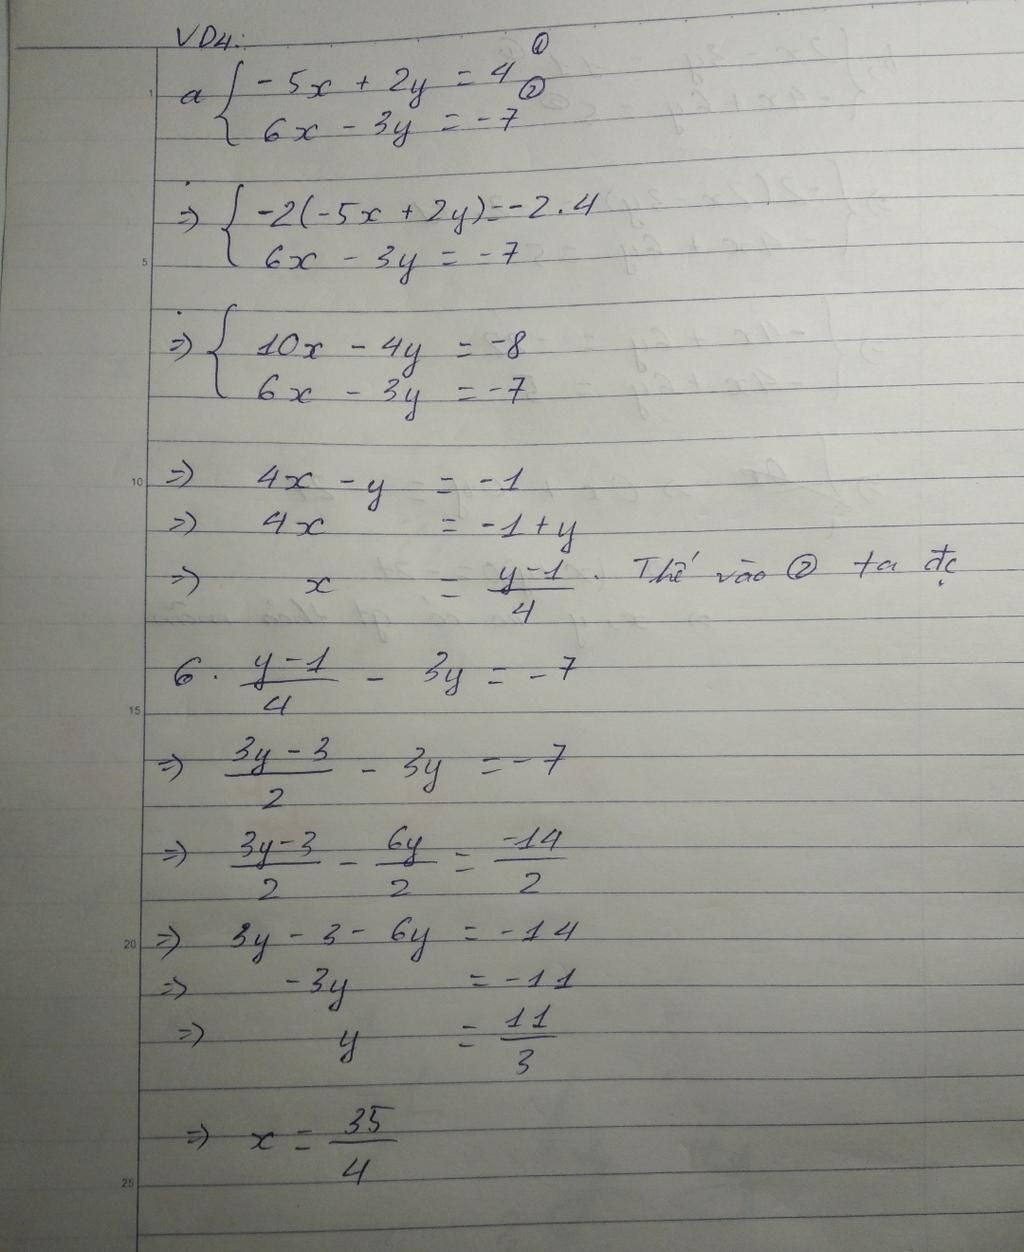 VD4:
a { -5x + 2y = 4 ①
6x - 3y = -7 ②
=> { -2(-5x + 2y) = -2.4
6x - 3y = -7
=> { 10x - 4y = -8
6x - 3y = -7
=> 4x - y = -1
=> 4x = -1 + y
=> x = (y-1)/4 . Thế vào ② ta đc
6 . (y-1)/4 - 3y = -7
=> (3y-3)/2 - 3y = -7
=> (3y-3)/2 - 6y/2 = -14/2
=> 3y - 3 - 6y = -14
=> -3y = -11
=> y = 11/3
=> x = 35/4
1
5
10
15
20
25